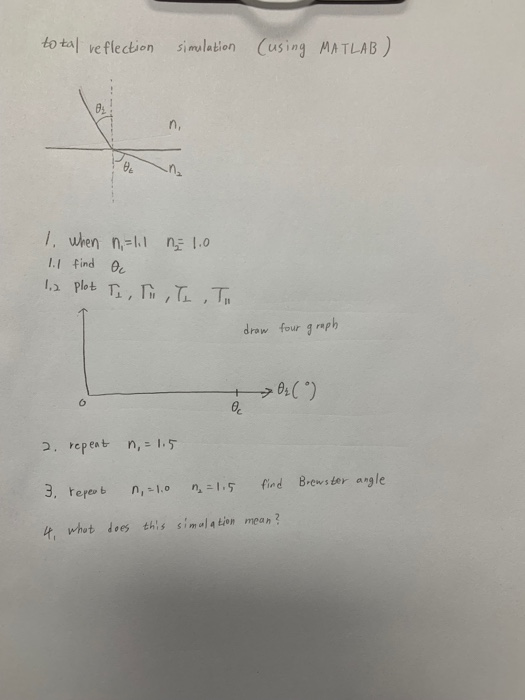 total reflection simulation (using MATLAB)
θi
n₁
θt
n₂
1. when n₁=1.1 n₂= 1.0
1.1 find θc
1.2 plot Γ⊥, Γ||, T⊥, T||
draw four graph
0
θc
θi(°)
2. repeat n₁ = 1.5
3. repeat n₁=1.0 n₂=1.5 find Brewster angle
4. what does this simulation mean?